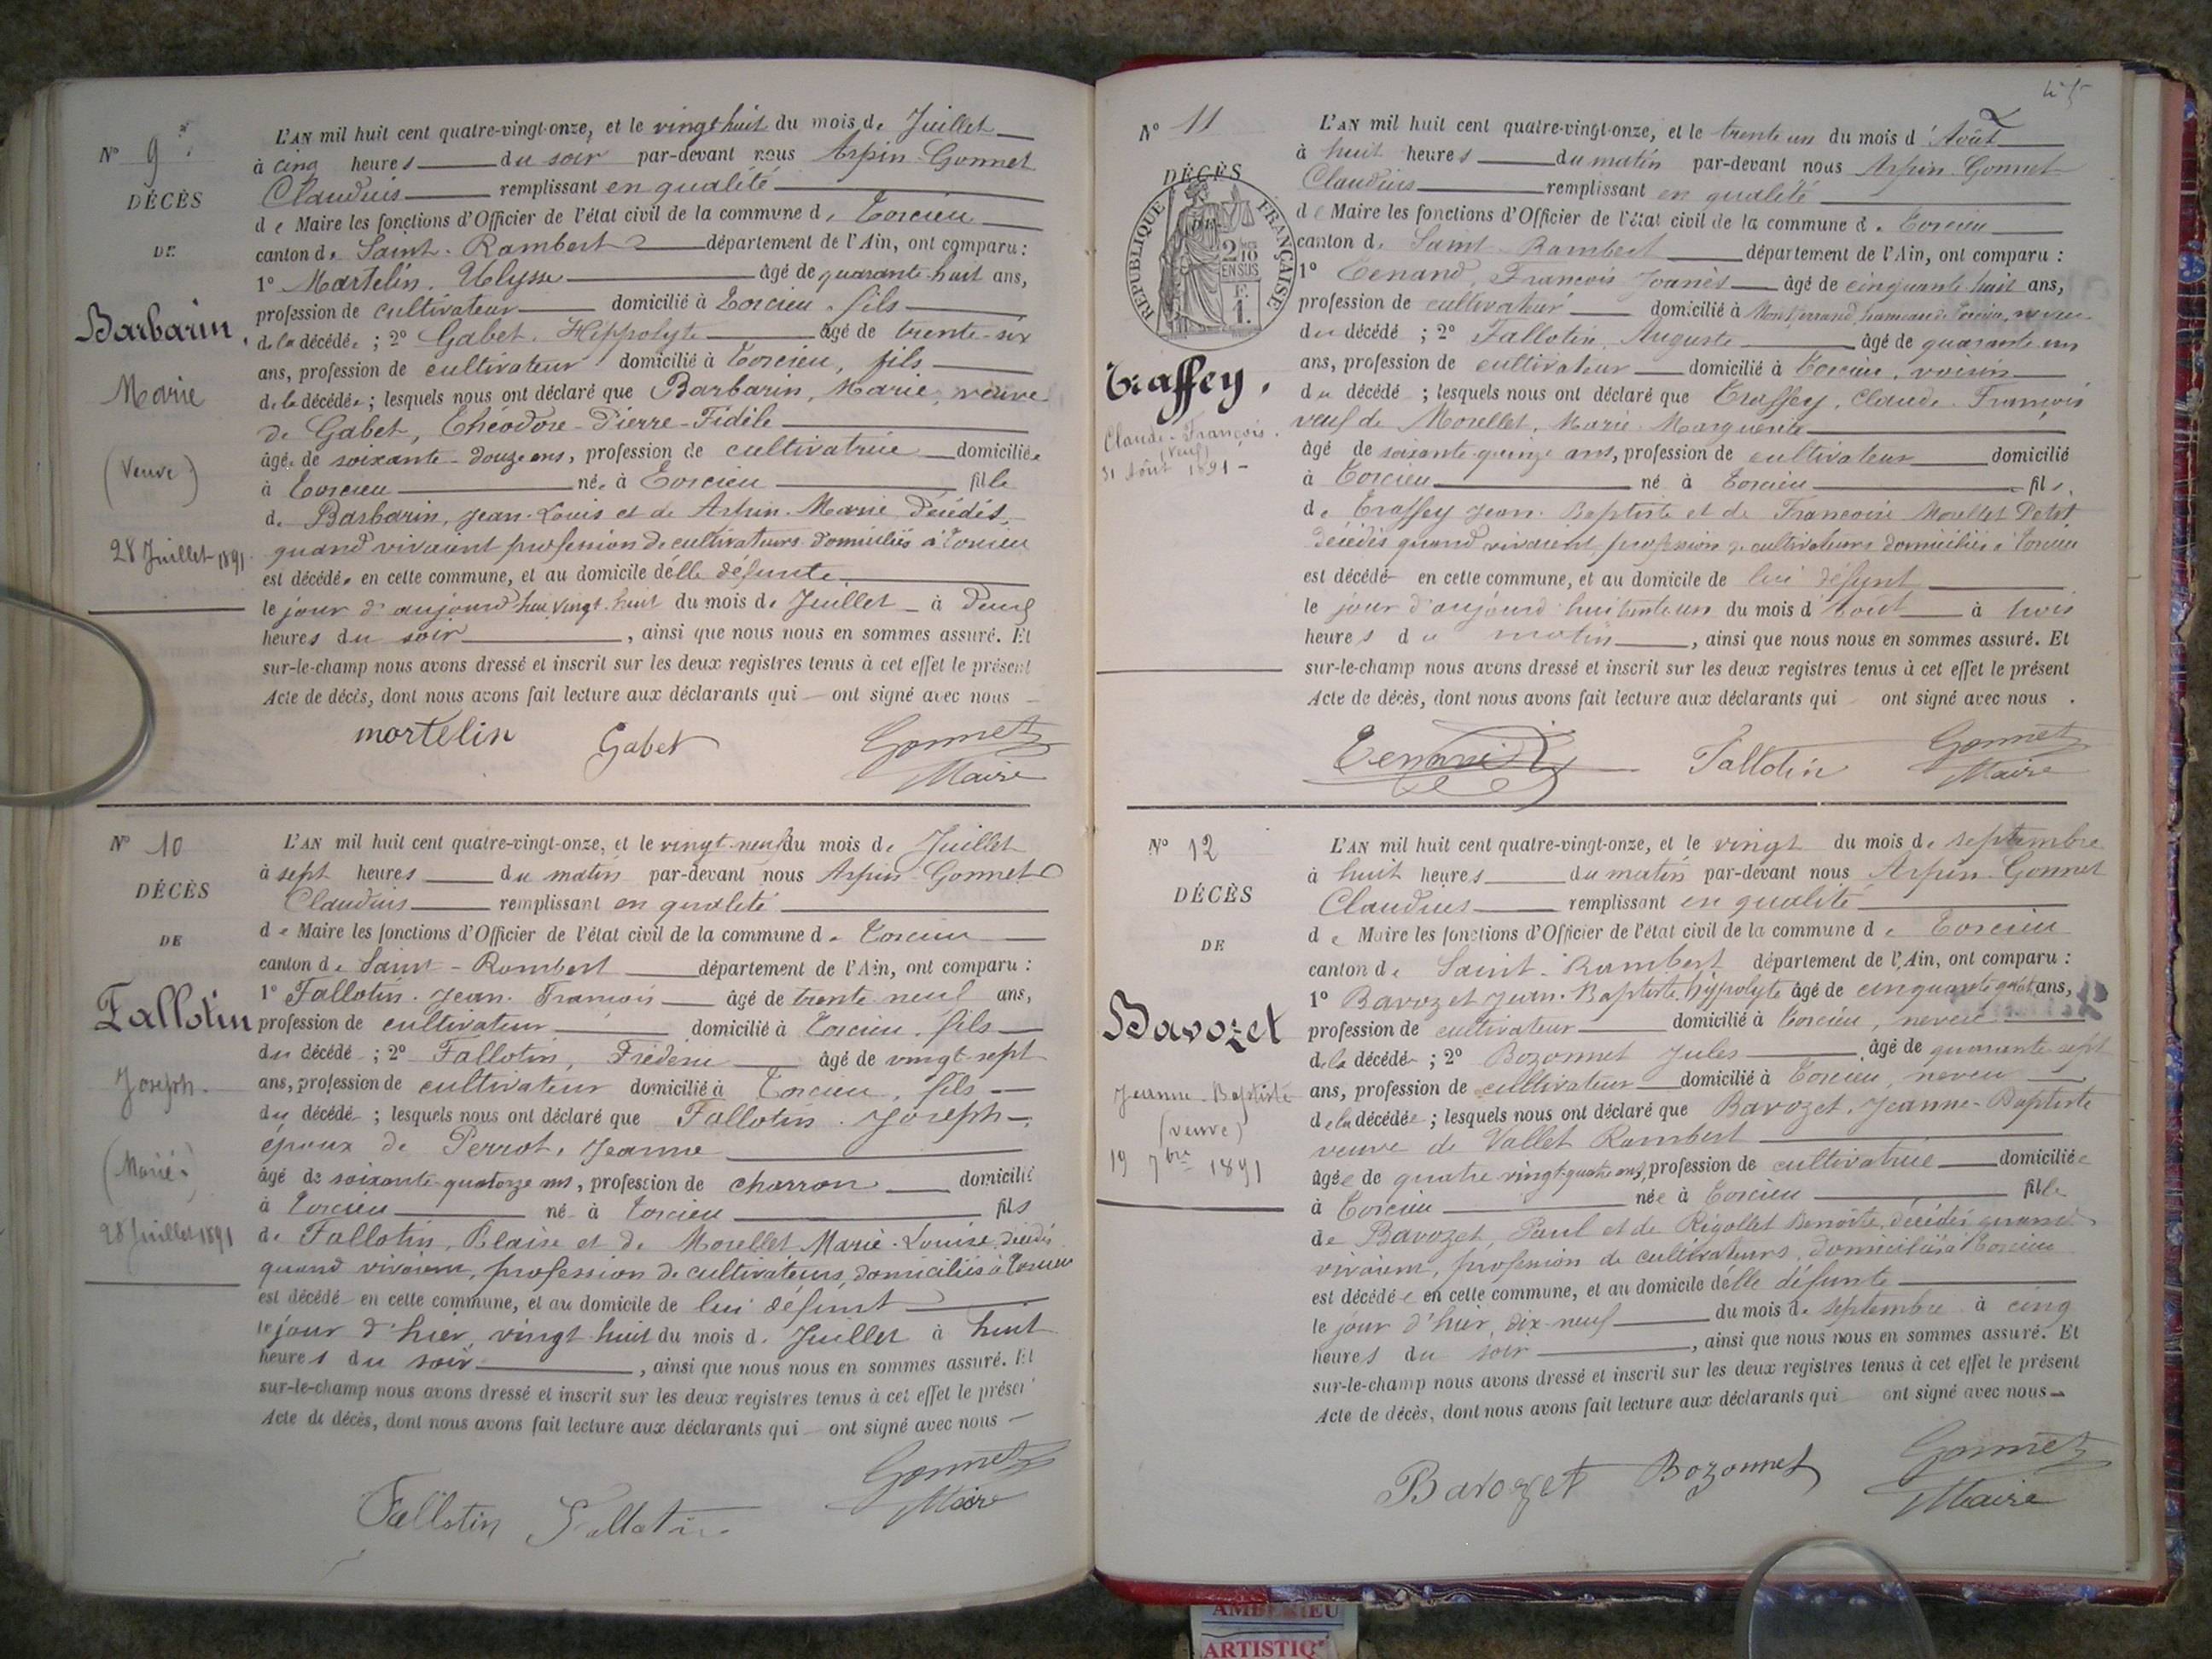 N° 9
DÉCÈS
DE
Barbarin,
Marie
(Veuve)
28 Juillet 1891
L'AN mil huit cent quatre-vingt-onze, et le vingt huit du mois de Juillet
à cinq heures du soir par-devant nous Arpin-Gonnet
Claudius remplissant en qualité
de Maire les fonctions d'Officier de l'état civil de la commune de Torcieu
canton de Saint-Rambert département de l'Ain, ont comparu :
1° Martelin, Ulysse âgé de quarante-huit ans,
profession de cultivateur domicilié à Torcieu, fils
de la décédée ; 2° Gabet, Hippolyte âgé de trente-six
ans, profession de cultivateur domicilié à Torcieu, fils
de la décédée ; lesquels nous ont déclaré que Barbarin, Marie, veuve
de Gabet, Théodore-Pierre-Fidèle
âgée de soixante-douze ans, profession de cultivatrice domiciliée
à Torcieu née à Torcieu fille
de Barbarin, Jean-Louis et de Arpin Marie, décédés,
quand vivaient profession de cultivateurs domiciliés à Torcieu
est décédée en cette commune, et au domicile d'elle défunte
le jour d'aujourd'hui vingt-huit du mois de Juillet à deux
heures du soir, ainsi que nous nous en sommes assuré. Et
sur-le-champ nous avons dressé et inscrit sur les deux registres tenus à cet effet le présent
Acte de décès, dont nous avons fait lecture aux déclarants qui ont signé avec nous
mortelin Gabet Gonnet
Maire
N° 10
DÉCÈS
DE
Fallotin
Joseph.
(Marié)
28 Juillet 1891
L'AN mil huit cent quatre-vingt-onze, et le vingt-neuf du mois de Juillet
à sept heures du matin par-devant nous Arpin-Gonnet
Claudius remplissant en qualité
de Maire les fonctions d'Officier de l'état civil de la commune de Torcieu
canton de Saint-Rambert département de l'Ain, ont comparu :
1° Fallotin, Jean-François âgé de trente neuf ans,
profession de cultivateur domicilié à Torcieu, fils
du décédé ; 2° Fallotin, Frédéric âgé de vingt-sept
ans, profession de cultivateur domicilié à Torcieu, fils
du décédé ; lesquels nous ont déclaré que Fallotin, Joseph
époux de Perrot, Jeanne
âgé de soixante-quatorze ans, profession de charron domicilié
à Torcieu né à Torcieu fils
de Fallotin, Blaise et de Morellet, Marie-Louise, décédés
quand vivaient, profession de cultivateurs, domiciliés à Torcieu
est décédé en cette commune, et au domicile de lui défunt
le jour d'hier, vingt-huit du mois de Juillet à huit
heures du soir, ainsi que nous nous en sommes assuré. Et
sur-le-champ nous avons dressé et inscrit sur les deux registres tenus à cet effet le présent
Acte de décès, dont nous avons fait lecture aux déclarants qui ont signé avec nous
Fallotin Fallotin Gonnet
Maire
45
N° 11
DÉCÈS
DE
RÉPUBLIQUE FRANÇAISE
2/10
EN SUS
F.
1.
Traffey,
Claude-François.
(Veuf)
31 Août 1891
L'AN mil huit cent quatre-vingt-onze, et le trente un du mois d'Août
à huit heures du matin par-devant nous Arpin-Gonnet
Claudius remplissant en qualité
de Maire les fonctions d'Officier de l'état civil de la commune de Torcieu
canton de Saint-Rambert département de l'Ain, ont comparu :
1° Tenand, François Joanès âgé de cinquante huit ans,
profession de cultivateur domicilié à Montferrand, hameau de Torcieu, neveu
du décédé ; 2° Fallotin, Auguste âgé de quarante un
ans, profession de cultivateur domicilié à Torcieu, voisin
du décédé ; lesquels nous ont déclaré que Traffey, Claude-François
veuf de Morellet, Marie-Marguerite
âgé de soixante-quinze ans, profession de cultivateur domicilié
à Torcieu né à Torcieu fils
de Traffey Jean-Baptiste et de Françoise Morellet Petit
décédés quand vivaient profession de cultivateurs domiciliés à Torcieu
est décédé en cette commune, et au domicile de lui défunt
le jour d'aujourd'hui trente un du mois d'Août à trois
heures du matin, ainsi que nous nous en sommes assuré. Et
sur-le-champ nous avons dressé et inscrit sur les deux registres tenus à cet effet le présent
Acte de décès, dont nous avons fait lecture aux déclarants qui ont signé avec nous.
Tenand Fallotin Gonnet
Maire
N° 12
DÉCÈS
DE
Bavozet
Jeanne-Baptiste
(veuve)
19 7bre 1891
L'AN mil huit cent quatre-vingt-onze, et le vingt du mois de septembre
à huit heures du matin par-devant nous Arpin-Gonnet
Claudius remplissant en qualité
de Maire les fonctions d'Officier de l'état civil de la commune de Torcieu
canton de Saint-Rambert département de l'Ain, ont comparu :
1° Bavozet Jean-Baptiste hyppolyte âgé de cinquante ans,
profession de cultivateur domicilié à Torcieu, neveu
de la décédée ; 2° Bozonnet Jules âgé de quarante sept
ans, profession de cultivateur domicilié à Torcieu, neveu
de la décédée ; lesquels nous ont déclaré que Bavozet, Jeanne-Baptiste
veuve de Vallet Rambert
âgée de quatre vingt-quatre ans, profession de cultivatrice domiciliée
à Torcieu née à Torcieu fille
de Bavozet, Paul et de Rigollet Benoîte, décédés quand
vivaient, profession de cultivateurs, domiciliés à Torcieu
est décédée en cette commune, et au domicile d'elle défunte
le jour d'hier, dix-neuf du mois de septembre à cinq
heures du soir, ainsi que nous nous en sommes assuré. Et
sur-le-champ nous avons dressé et inscrit sur les deux registres tenus à cet effet le présent
Acte de décès, dont nous avons fait lecture aux déclarants qui ont signé avec nous
Bavozet Bozonnet Gonnet
Maire
AMBERIEU
ARTISTIQ